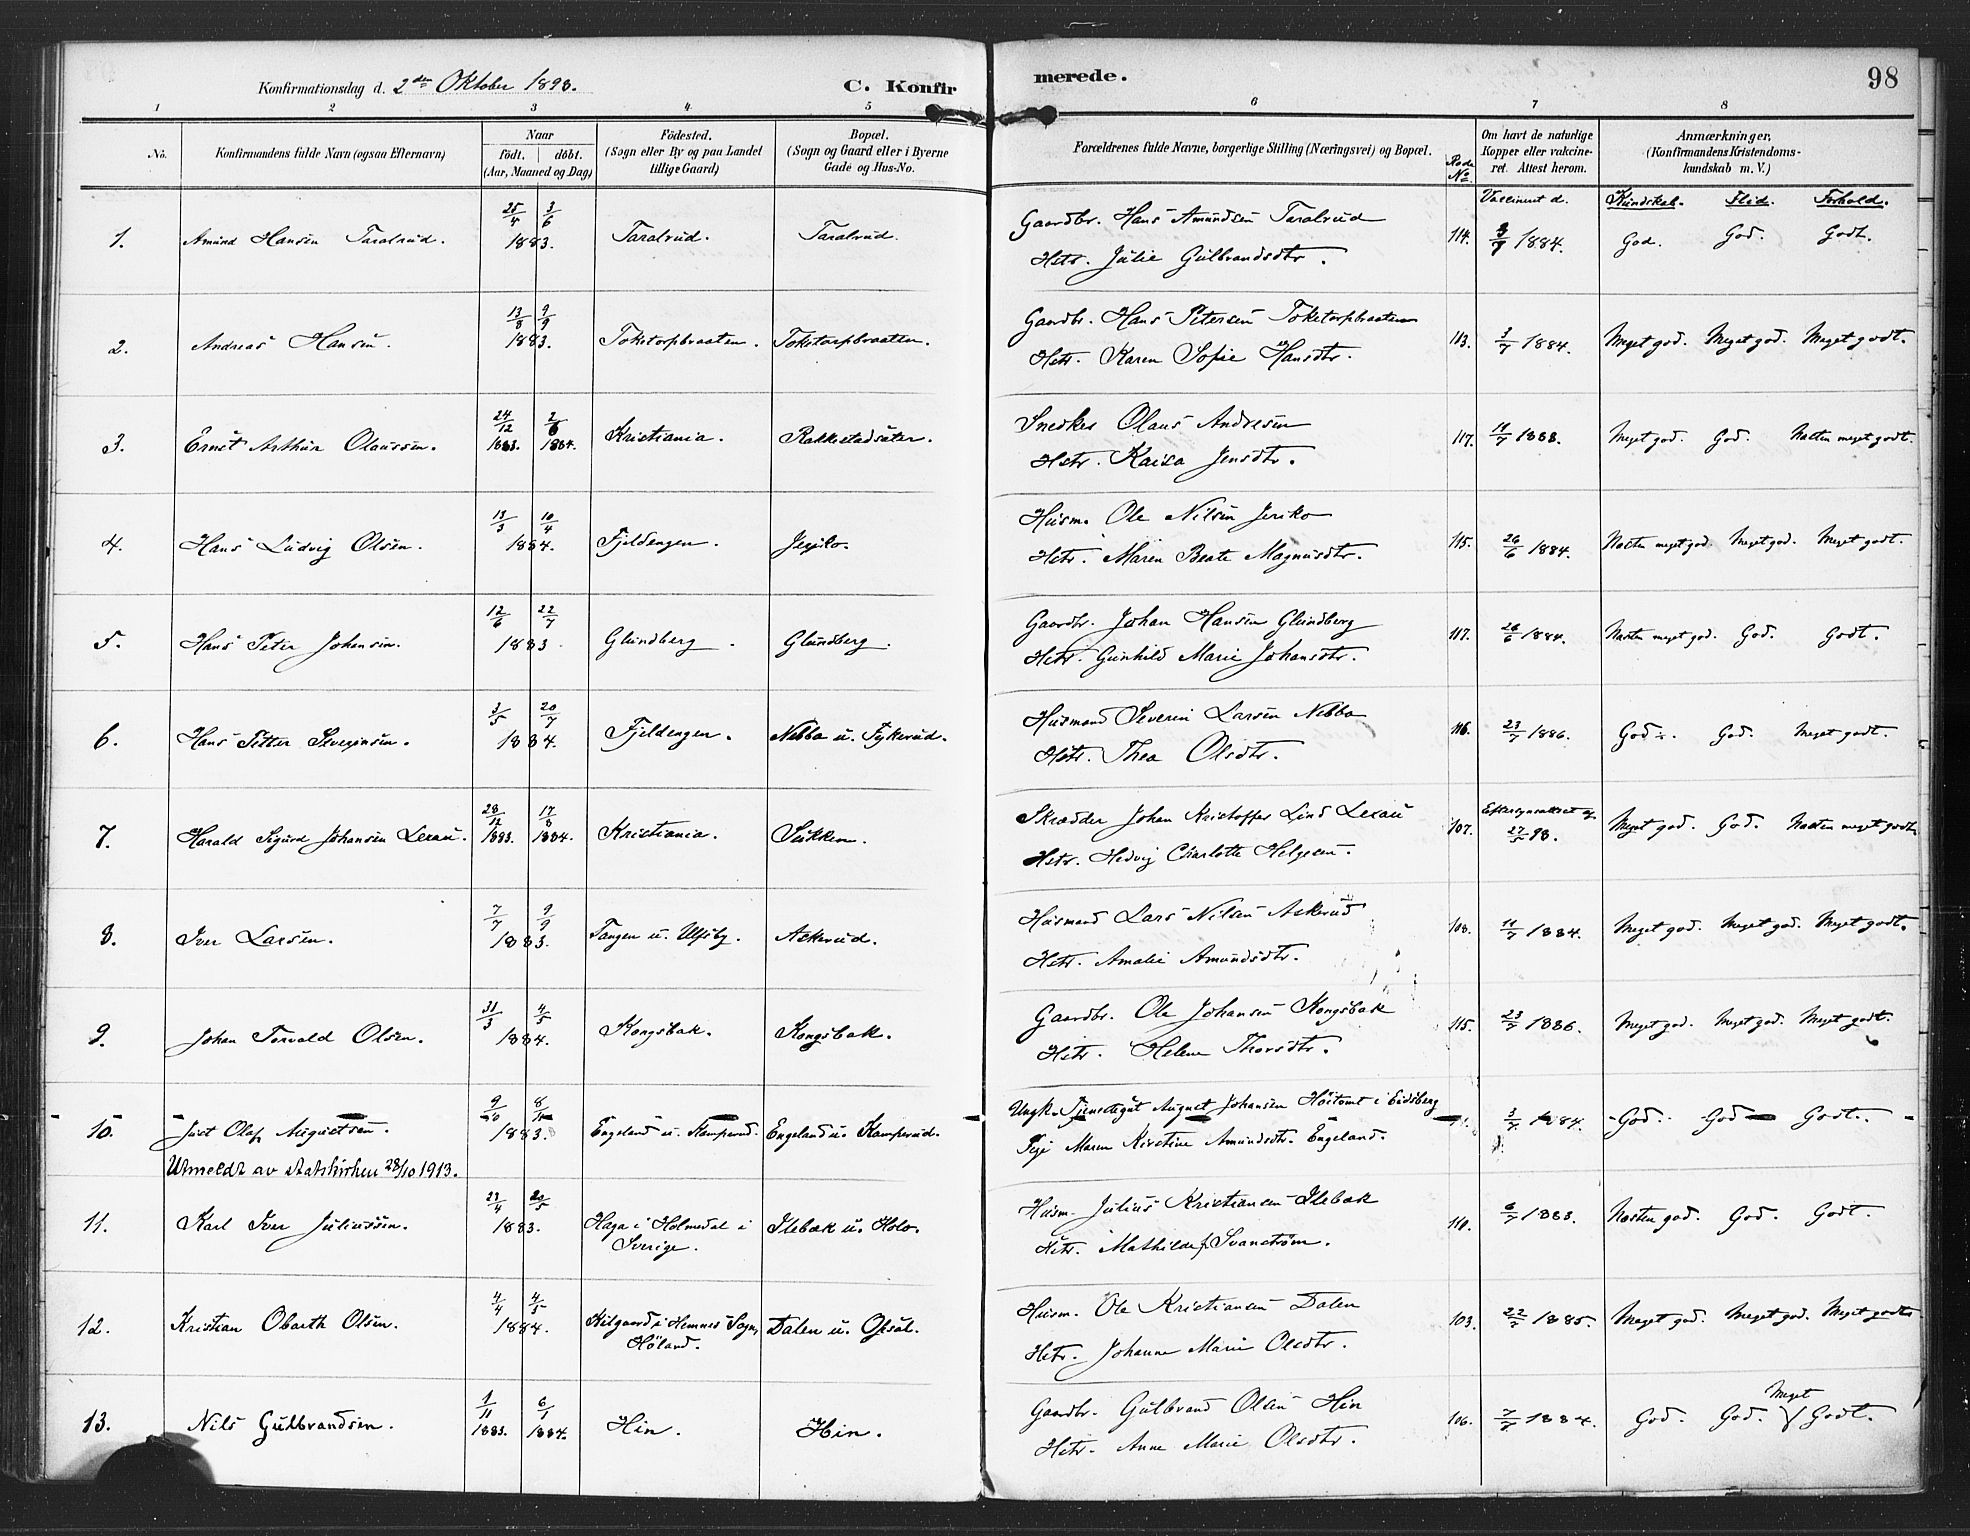 Konfirmationsdag d. 2den Oktober 1898. C. Konfirmerede. 98
1 2 3 4 5 6 7 8
No. Konfirmandens fulde Navn (ogsaa Efternavn) Naar født. døbt. (Aar, Maaned og Dag) Fødested. (Sogn eller By og paa Landet tillige Gaard) Bopæl. (Sogn og Gaard eller i Byerne Gade og Hus-No. Forældrenes fulde Navne, borgerlige Stilling (Næringsvei) og Bopæl. Rode No. Om havt de naturlige Kopper eller vakcineret. Attest herom. Anmærkninger, (Konfirmandens Kristendomskundskab m. V.)
Vaccineret d. Kundskab. Flid. Forhold.
1. Amund Hansen Taralrud. 25/4 3/6 1883. Taralrud. Taralrud. Gaardbr. Hans Amundsen Taralrud
Hstr. Julie Gulbrandsdtr. 114. 1884. God. God. Godt.
2. Andreas Hansen. 13/8 9/9 1883. Toketorpbraaten. Toketorpbraatten. Gaardbr. Hans Petersen Toketorpbraaten
Hstr. Karen Sofie Hansdtr. 113. 3/7 1884. Meget god. Meget god. Meget godt.
3. Ernst Arthur Olaussen. 24/12 1883. 2/6 1884. Kristiania. Rakkestadsæter. Snedker Olaus Andresen
Hstr. Kaisa Jensdtr. 117. 1888. Meget god. God. Næsten meget godt.
4. Hans Ludvig Olsen. 13/3 10/4 1884. Fjeldengen. Jeriko. Husm. Ole Nilsen Jeriko
Hstr. Maren Beate Magnusdtr. 115. 26/6 1884. Næsten meget god. Meget god. Meget godt.
5. Hans Peter Johansen. 12/6 22/7 1883. Glundberg. Glundberg. Gaardbr. Johan Hansen Glundberg
Hstr. Gunhild Marie Johansdtr. 117. 26/6 1884. Næsten meget god. God. Godt.
6. Hans Petter Severinsen. 3/5 20/7 1884. Fjeldengen. Nebba u. Tykerud. Husmand Severin Larsen Nebba
Hstr. Thea Olsdtr. 116. 23/7 1886. God. God. Meget godt.
7. Harald Sigurd Johansen Lexau. 28/12 1883. 17/8 1884. Kristiania. Sukken. Skrædder Johan Kristoffer Lind Lexau
Hstr. Hedvig Charlotte Helgesen. 107. 27/5 98. Meget god. God. Næsten meget godt.
8. Iver Larsen. 7/7 9/9 1883. Tangen u. Ulfsby. Askerud. Husmand Lars Nilsen Askerud
Hstr. Amalie Amundsdtr. 108. 11/7 1884. Meget god. Meget god. Meget godt.
9. Johan Torvald Olsen. 31/3 4/5 1884. Kongsbak. Kongsbak. Gaardbr. Ole Johansen Kongsbak
Hstr. Helene Thorsdtr. 115. 23/7 1886. Meget god. Meget god. Meget godt.
10. Just Olaf Augustsen. 9/10 8/11 1883. Engeland u. Kamperud. Engeland u. Kamperud. Ungk. Tjenestegut August Johansen Høitomt i Eidsberg
Pige Maren Kirstine Amundsdtr. Engeland. 3/7 1884. God. God. Godt.
Utmeldt av statskirken 28/10 1913.
11. Karl Iver Juliussen. 23/4 20/5 1883. Haga i Holmedal i Sverige. Ilebæk u. Holo. Husm. Julius Kristiansen Ilebæk
Hstr. Mathilde f. Svanstrøm. 110. 6/7 1888. Næsten god. God. Godt.
12. Kristian Obarth Olsen. 4/4 4/5 1884. Kilgaard i Hemnes Sogn, Høland. Dalen u. Ofsal. Husm. Ole Kristiansen Dalen
Hstr. Johanne Marie Olsdtr. 103. 1885. Meget god. Meget god. Meget godt.
13. Nils Gulbrandsen. 1/11 1883. 6/1 1884. Hin. Hin. Gaardbr. Gulbrand Olsen Hin
Hstr. Anne Marie Olsdtr. 106. 7/7 1884. God. God. Meget Godt.